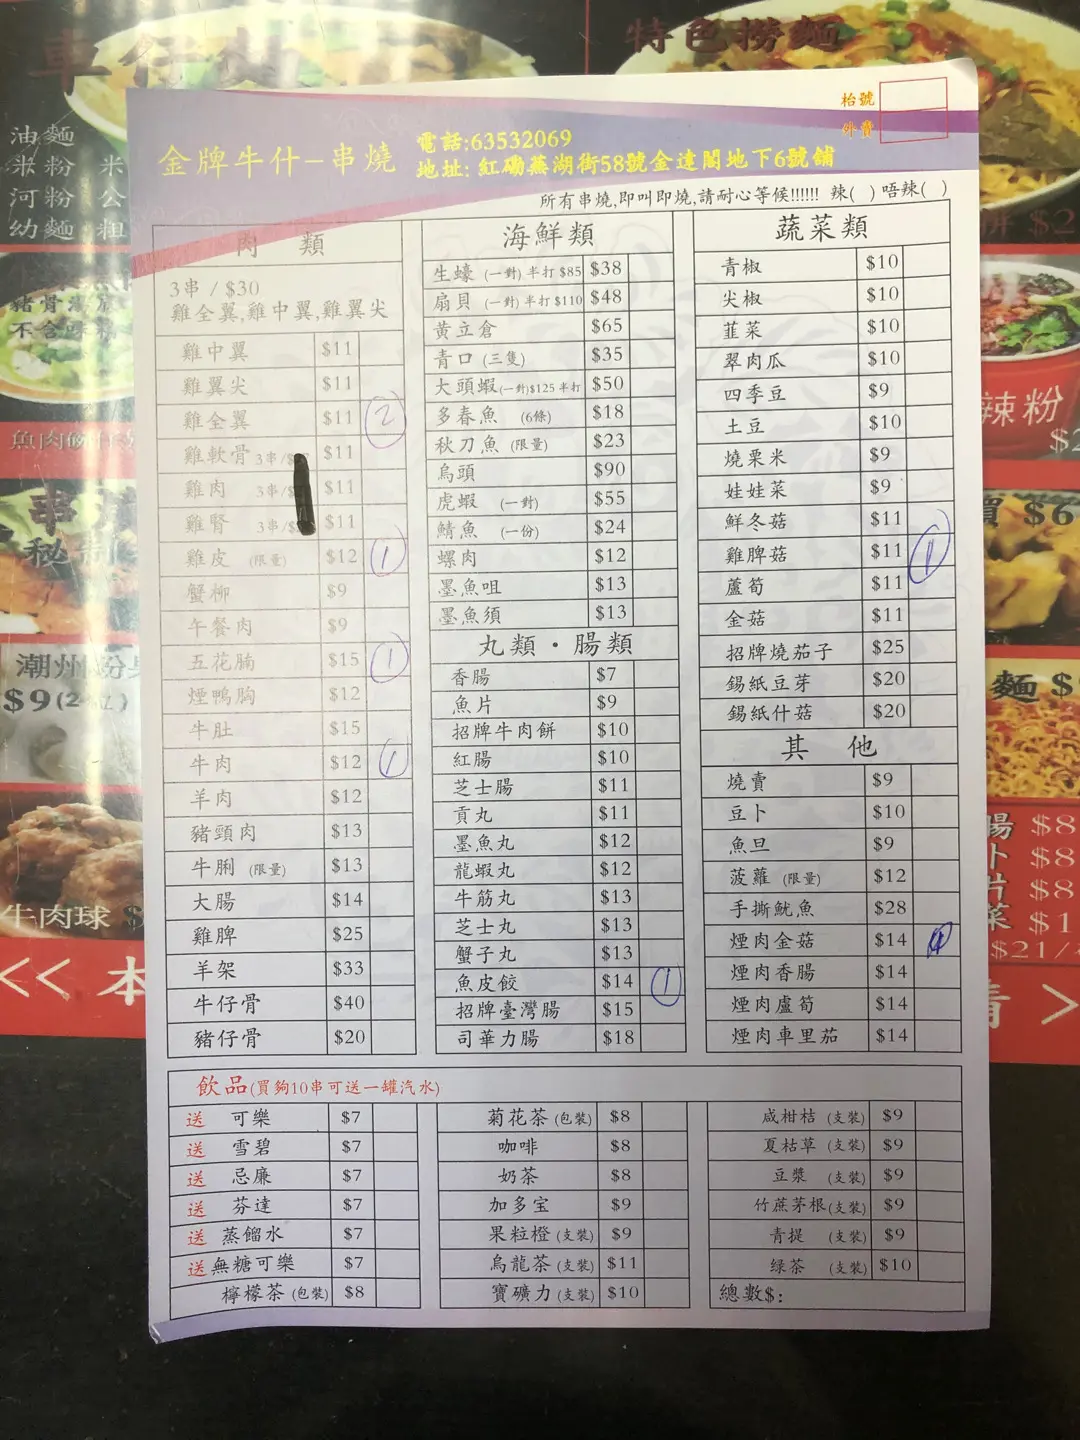 車仔麵
特色撈麵
油麵
米粉 米
河粉 公
幼麵 粗
枱號
外賣
金牌牛什-串燒
電話:63532069
地址: 紅磡蕪湖街58號金達閣地下6號舖
所有串燒,即叫即燒,請耐心等候!!!!!! 辣( ) 唔辣( )
肉 類
3串 / $30
雞全翼,雞中翼,雞翼尖
雞中翼 $11
雞翼尖 $11
雞全翼 $11 2
雞軟骨 3串/$ $11
雞肉 3串/$ $11
雞腎 3串/$ $11
雞皮 (限量) $12 1
蟹柳 $9
午餐肉 $9
五花腩 $15 1
煙鴨胸 $12
牛肚 $15
牛肉 $12 1
羊肉 $12
豬頸肉 $13
牛脷 (限量) $13
大腸 $14
雞脾 $25
羊架 $33
牛仔骨 $40
豬仔骨 $20
海鮮類
生蠔 (一對) 半打 $85 $38
扇貝 (一對) 半打 $110 $48
黃立倉 $65
青口 (三隻) $35
大頭蝦 (一對) $125 半打 $50
多春魚 (6條) $18
秋刀魚 (限量) $23
烏頭 $90
虎蝦 (一對) $55
鯖魚 (一份) $24
螺肉 $12
墨魚咀 $13
墨魚須 $13
丸類·腸類
香腸 $7
魚片 $9
招牌牛肉餅 $10
紅腸 $10
芝士腸 $11
貢丸 $11
墨魚丸 $12
龍蝦丸 $12
牛筋丸 $13
芝士丸 $13
蟹子丸 $13
魚皮餃 $14 1
招牌臺灣腸 $15
司華力腸 $18
蔬菜類
青椒 $10
尖椒 $10
韮菜 $10
翠肉瓜 $10
四季豆 $9
土豆 $10
燒栗米 $9
娃娃菜 $9
鮮冬菇 $11
雞脾菇 $11 1
蘆筍 $11
金菇 $11
招牌燒茄子 $25
錫紙豆芽 $20
錫紙什菇 $20
其 他
燒賣 $9
豆卜 $10
魚旦 $9
菠蘿 (限量) $12
手撕魷魚 $28
煙肉金菇 $14
煙肉香腸 $14
煙肉蘆筍 $14
煙肉車里茄 $14
飲品(買夠10串可送一罐汽水)
送 可樂 $7
送 雪碧 $7
送 忌廉 $7
送 芬達 $7
送 蒸餾水 $7
送 無糖可樂 $7
檸檬茶 (包裝) $8
菊花茶 (包裝) $8
咖啡 $8
奶茶 $8
加多宝 $9
果粒橙 (支裝) $9
烏龍茶 (支裝) $11
寶礦力 (支裝) $10
咸柑桔 (支裝) $9
夏枯草 (支裝) $9
豆漿 (支裝) $9
竹蔗茅根 (支裝) $9
青提 (支裝) $9
绿茶 (支裝) $10
總數$:
豬骨湯
不含味精
潮州粉
$9(2粒)
牛肉球 $
<< 本
辣粉
$6
麵 $
腸 $8
卜 $8
片 $8
菜 $1
$21/
>